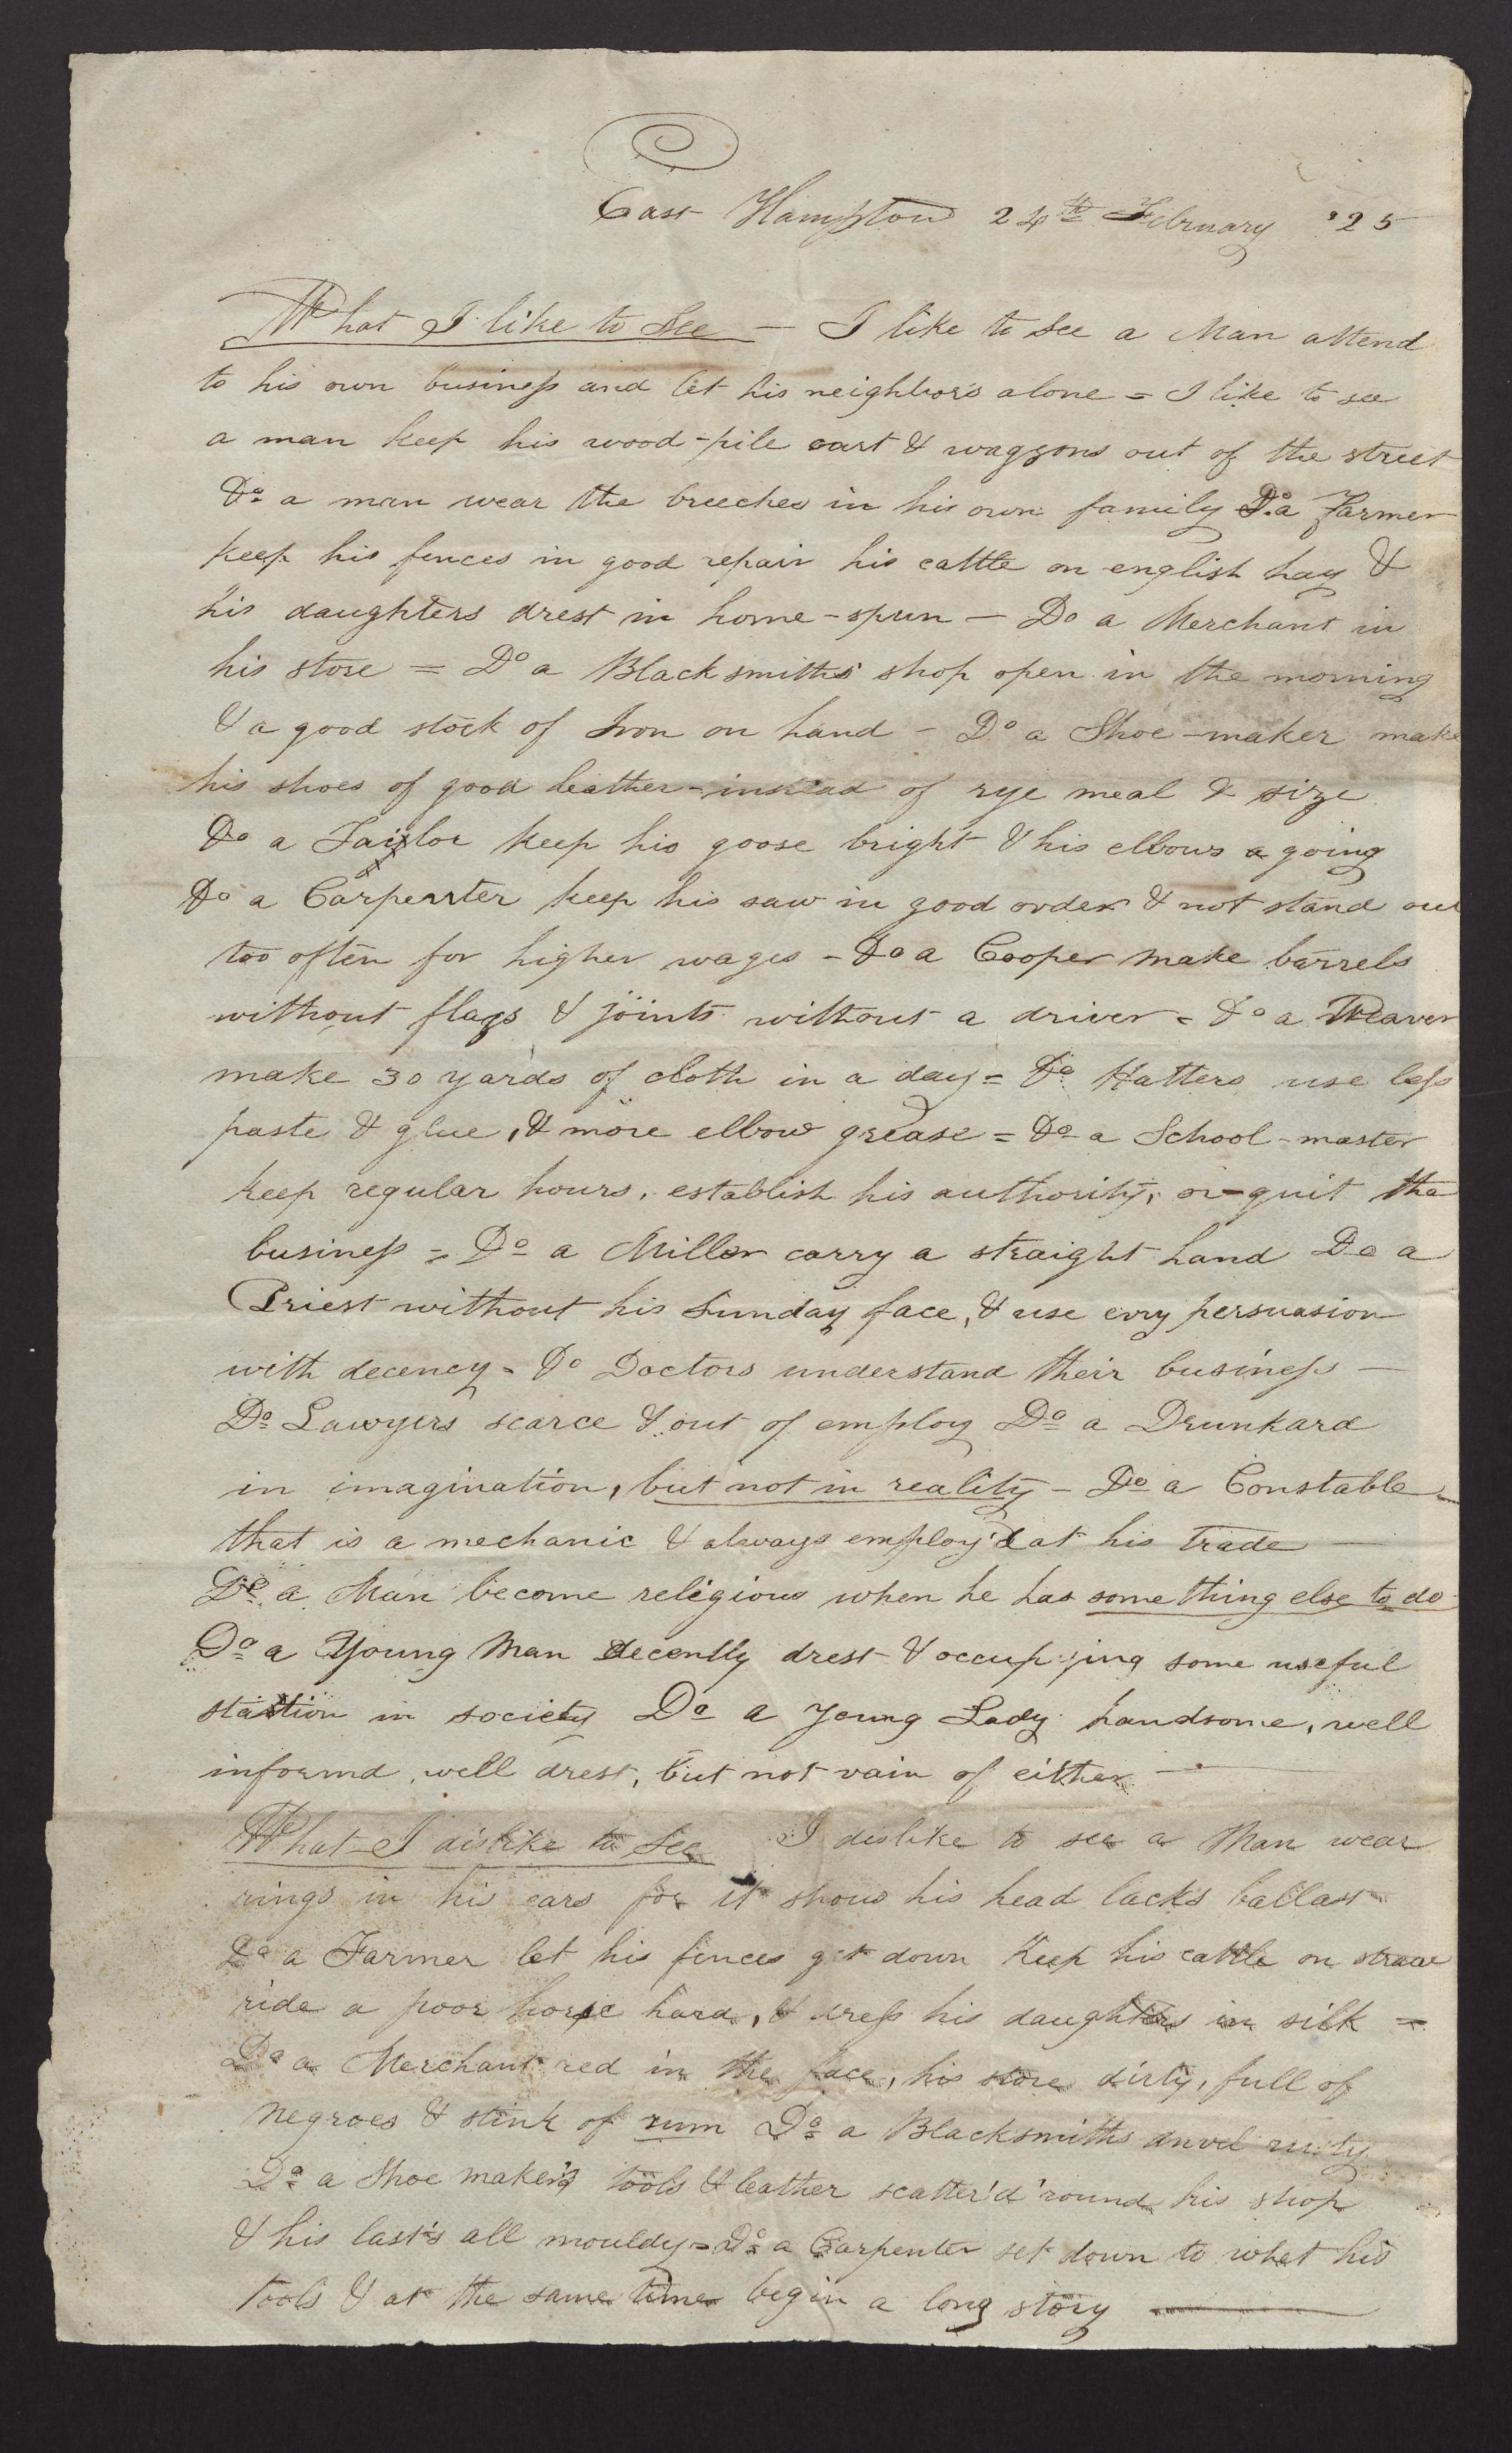 East Hampton 24th February '25
What I like to See — I like to See a Man attend
to his own business and let his neighbors alone = I like to see
a man keep his wood-pile cart & waggons out of the street
Do a man wear the breeches in his own family Do a Farmer
keep his fences in good repair his cattle on english hay &
his daughters drest in home-spun — Do a Merchant in
his store = Do a Blacksmiths shop open in the morning
& a good stock of Iron on hand - Do a Shoe-maker make
his shoes of good leather - instead of rye meal & size
Do a Tailor keep his goose bright & his elbows a going
Do a Carpenter keep his saw in good order & not stand out
too often for higher wages - Do a Cooper make barrels
without flags & joints without a driver = Do a Weaver
make 30 yards of cloth in a day = Do Hatters use less
paste & glue, & more elbow grease = Do a School-master
keep regular hours, establish his authority, or quit the
business = Do a Miller carry a straight hand Do a
Priest without his Sunday face, & use evry persuasion
with decency = Do Doctors understand their business —
Do Lawyers scarce & out of employ Do a Drunkard
in imagination, but not in reality - Do a Constable
that is a mechanic & always employ'd at his trade —
Do a Man become religious when he has some thing else to do
Do a Young Man decently drest & occupying some useful
station in society Do a Young Lady handsome, well
informd, well drest, but not vain of either —
What I dislike to See I dislike to see a Man wear
rings in his ears for it shows his head lacks ballast
Do a Farmer let his fences get down keep his cattle on straw
ride a poor horse hard, & dress his daughters in silk =
Do a Merchant red in the face, his store dirty, full of
negroes & stink of rum Do a Blacksmiths anvil rusty
Do a Shoe maker's tools & leather scatter'd 'round his shop
& his last's all mouldy = Do a Carpenter set down to whet his
tools & at the same time begin a long story —